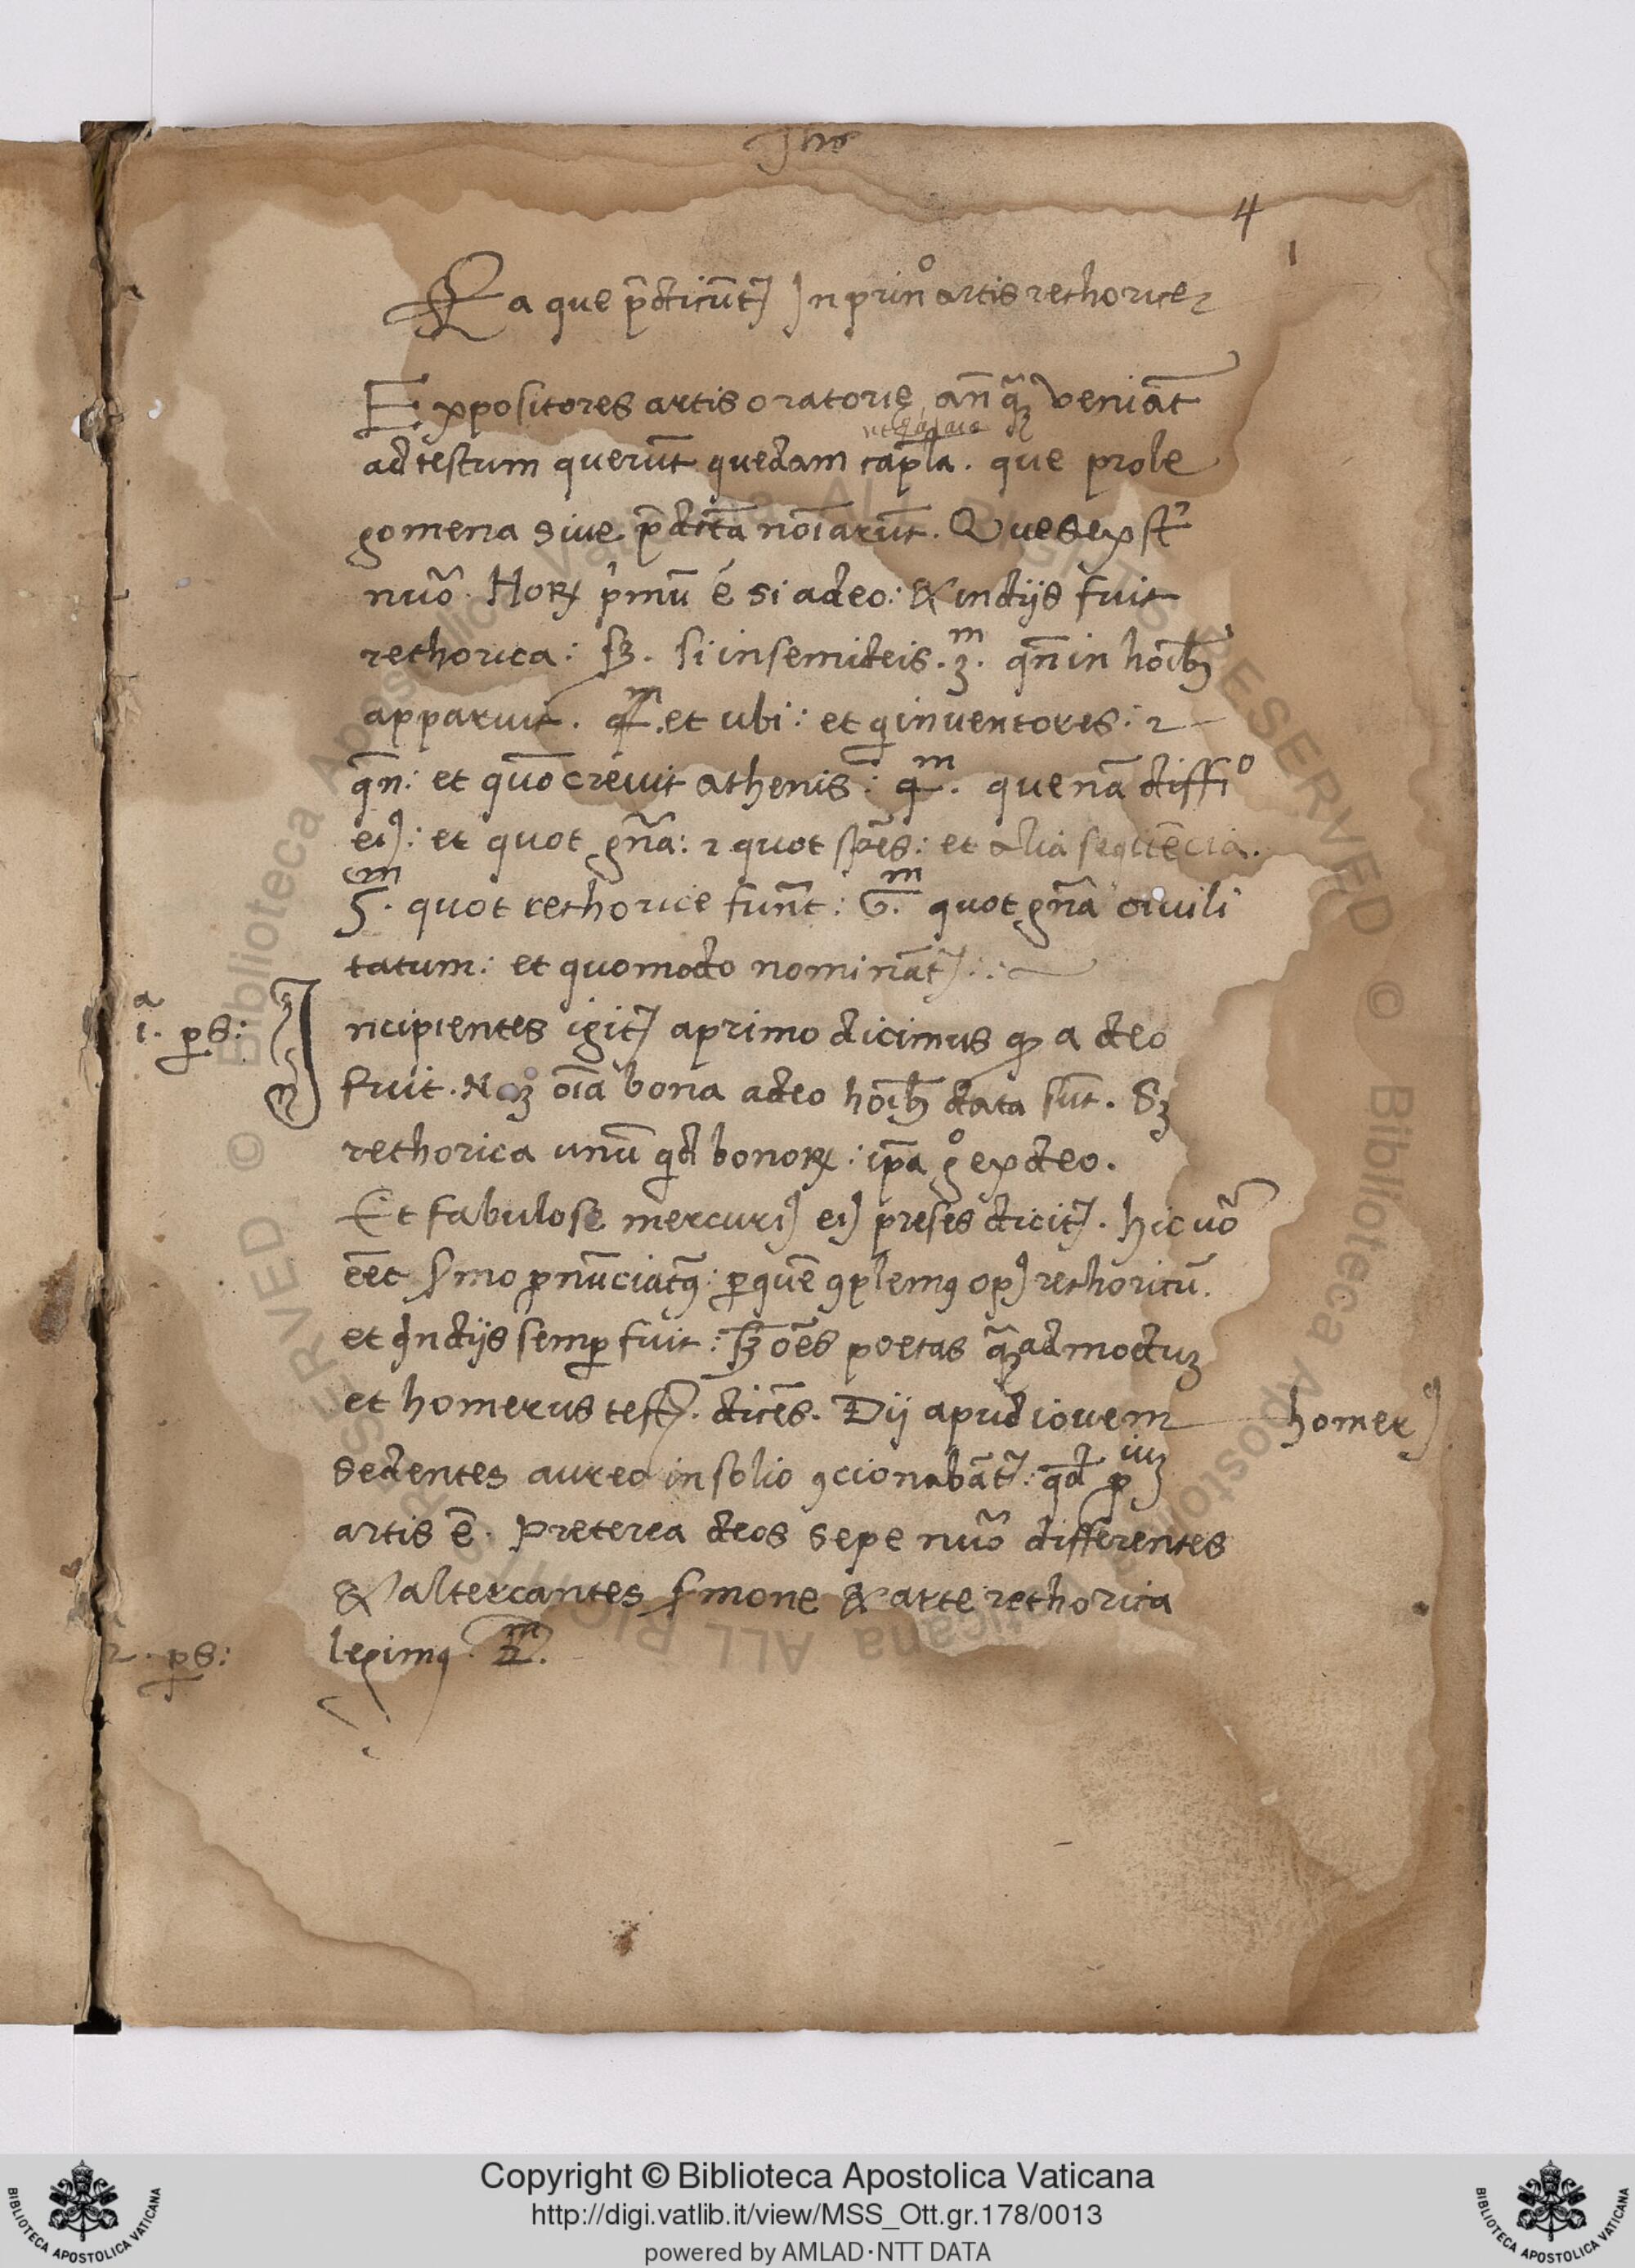 Jhs
4
1
Ea que p̄dicūt᷒ In prin° artis rethorice
Expositores artis oratorie an̄ q̃ꝫ veniāt
ad testum querūt quedam cap̄la. que prole
gomena sive p̄dicta noīarūt. Que sex st̄
nūo. Hoꝝ pͥmū ē si a deo: & in diis fuit
rethorica: sꝫ. si in semideis. 3.ᵐ qn̄ in hoībꝫ
apparuit. 4.ᵐ et ubi: et qͥ inventores: 2
qn̄: et quō crevit athenis: 4.ᵐ que nā diffi°
eiꝰ: et quot gn̄a: 2 quot sp̄es: et alia sequēcia.
5.ᵐ quot rethorice funt̄: 6.ᵐ quot gn̄a civili
tatum: et quomodo nomināt᷒:
1.ᵃ ps:
Incipientes igit᷒ a primo dicimus qꝫ a deo
fuit. Naꝫ oīa bona a deo hoībꝫ data sūt. Sꝫ
rethorica unū qͥd bonoꝝ: ip̄a g° ex deo.
Et fabulose mercuriꝰ eiꝰ preses dicit᷒. hic vō
eēt s̄mo ꝓnūciatꝰ: ꝑ quē ꝯplemꝰ opꝰ rethoricū.
et qͥ in diis semꝑ fuit: sꝫ oēs poetas q̃ꝫadmoduꝫ
et homerus test᷒. dicēs. Dij apud iovem
homerꝰ
sedentes aureo in solio ꝯcionabāt᷒: qd̄ ꝓiuꝫ
artis ē. Preterea deos sepe nūo differentes
& altercantes s̄mone & arte rethorica
legimꝰ. 2.ᵐ
2. ps:
Copyright © Biblioteca Apostolica Vaticana
http://digi.vatlib.it/view/MSS_Ott.gr.178/0013
powered by AMLAD·NTT DATA
BIBLIOTECA APOSTOLICA VATICANA
BIBLIOTECA APOSTOLICA VATICANA
© Biblioteca Apostolica Vaticana ALL RIGHTS RESERVED
© Biblioteca Apostolica Vaticana ALL RIGHTS RESERVED